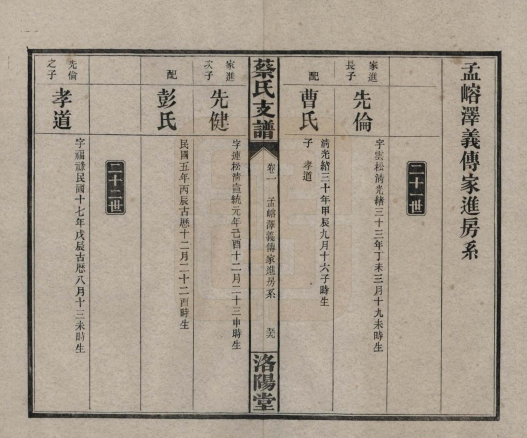 孟嵱澤義傳家進房系
二十一世
家進長子
先倫
字雲松清光緒三十三年丁未三月十九未時生
配
曹氏
清光緒三十年甲辰九月十六子時生
子 孝道
蔡氏支譜
卷一
孟嵱澤義傳家進房系
洛陽堂
家進次子
先健
字連松清宣統元年己酉十二月二十三申時生
配
彭氏
民國五年丙辰古曆十二月二十二酉時生
二十二世
先倫之子
孝道
字福謙民國十七年戊辰古曆八月十三未時生